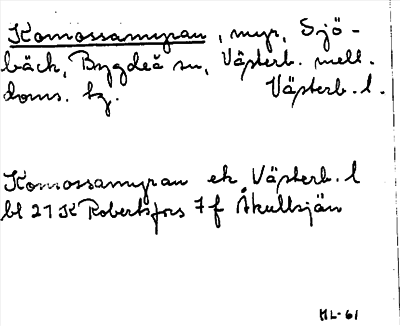 Komossamyran, myr, Sjö-
bäck, Bygdeå sn, Västerb. mell.
doms. tg. Västerb. l.
Komossamyran ek Västerb. l
bl 21 K Robertsfors 7 f Åkullsjön
HL-61